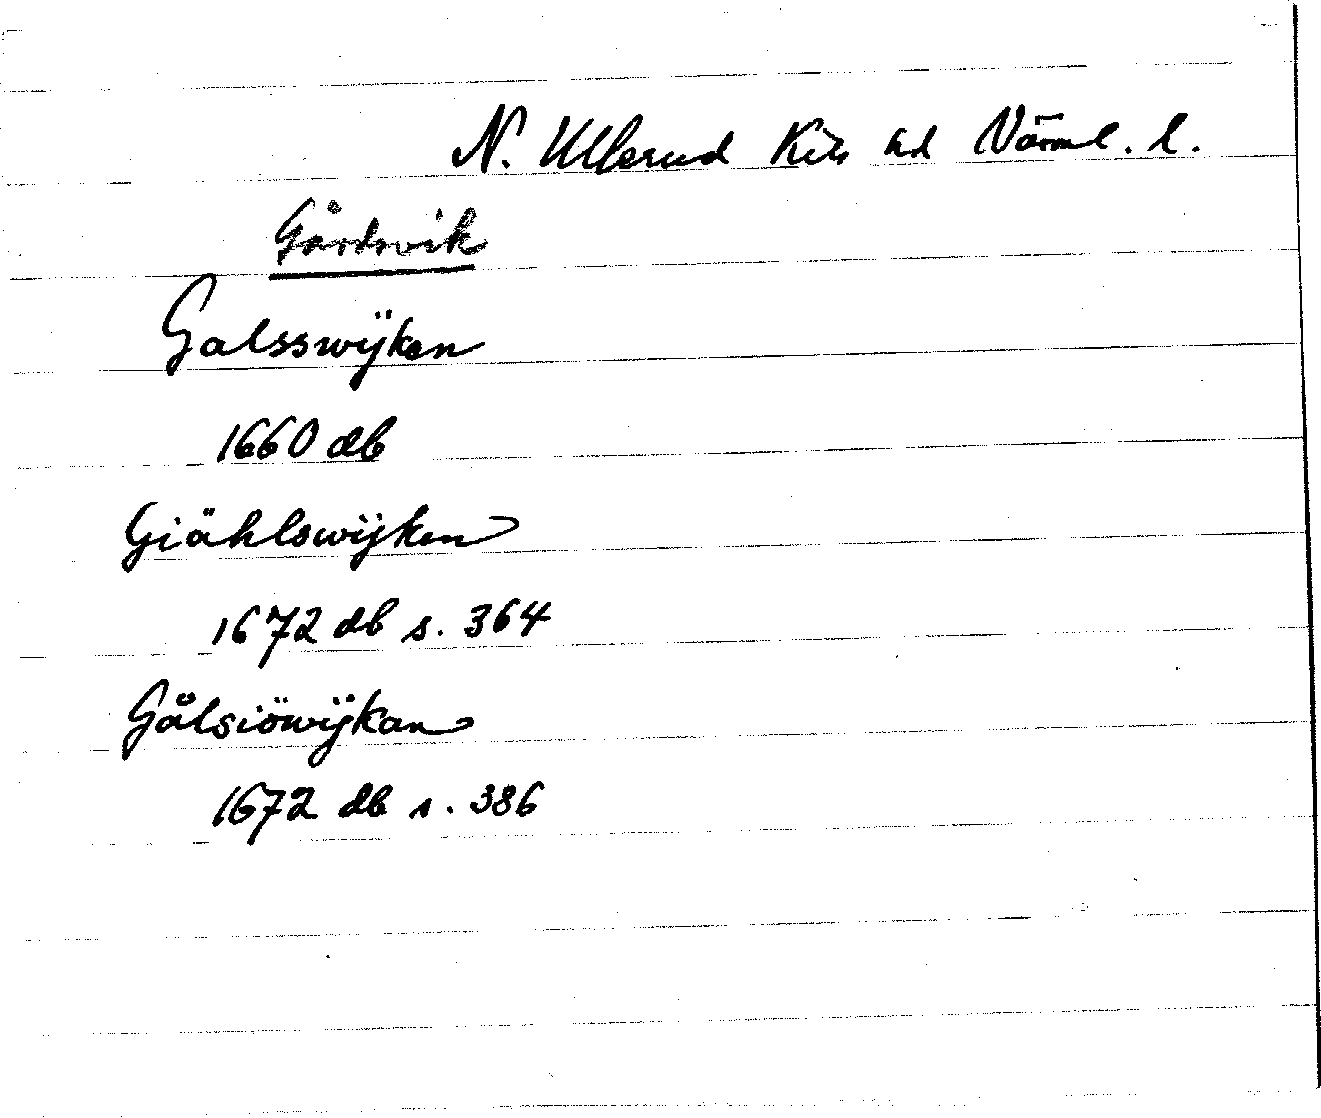 N. Ullerud Kils hd Värml. l.
Gårdsvik
Galsswÿken
1660 db
Giählswÿken
1672 db s. 364
Gålsiöwÿkan
1672 db s. 386